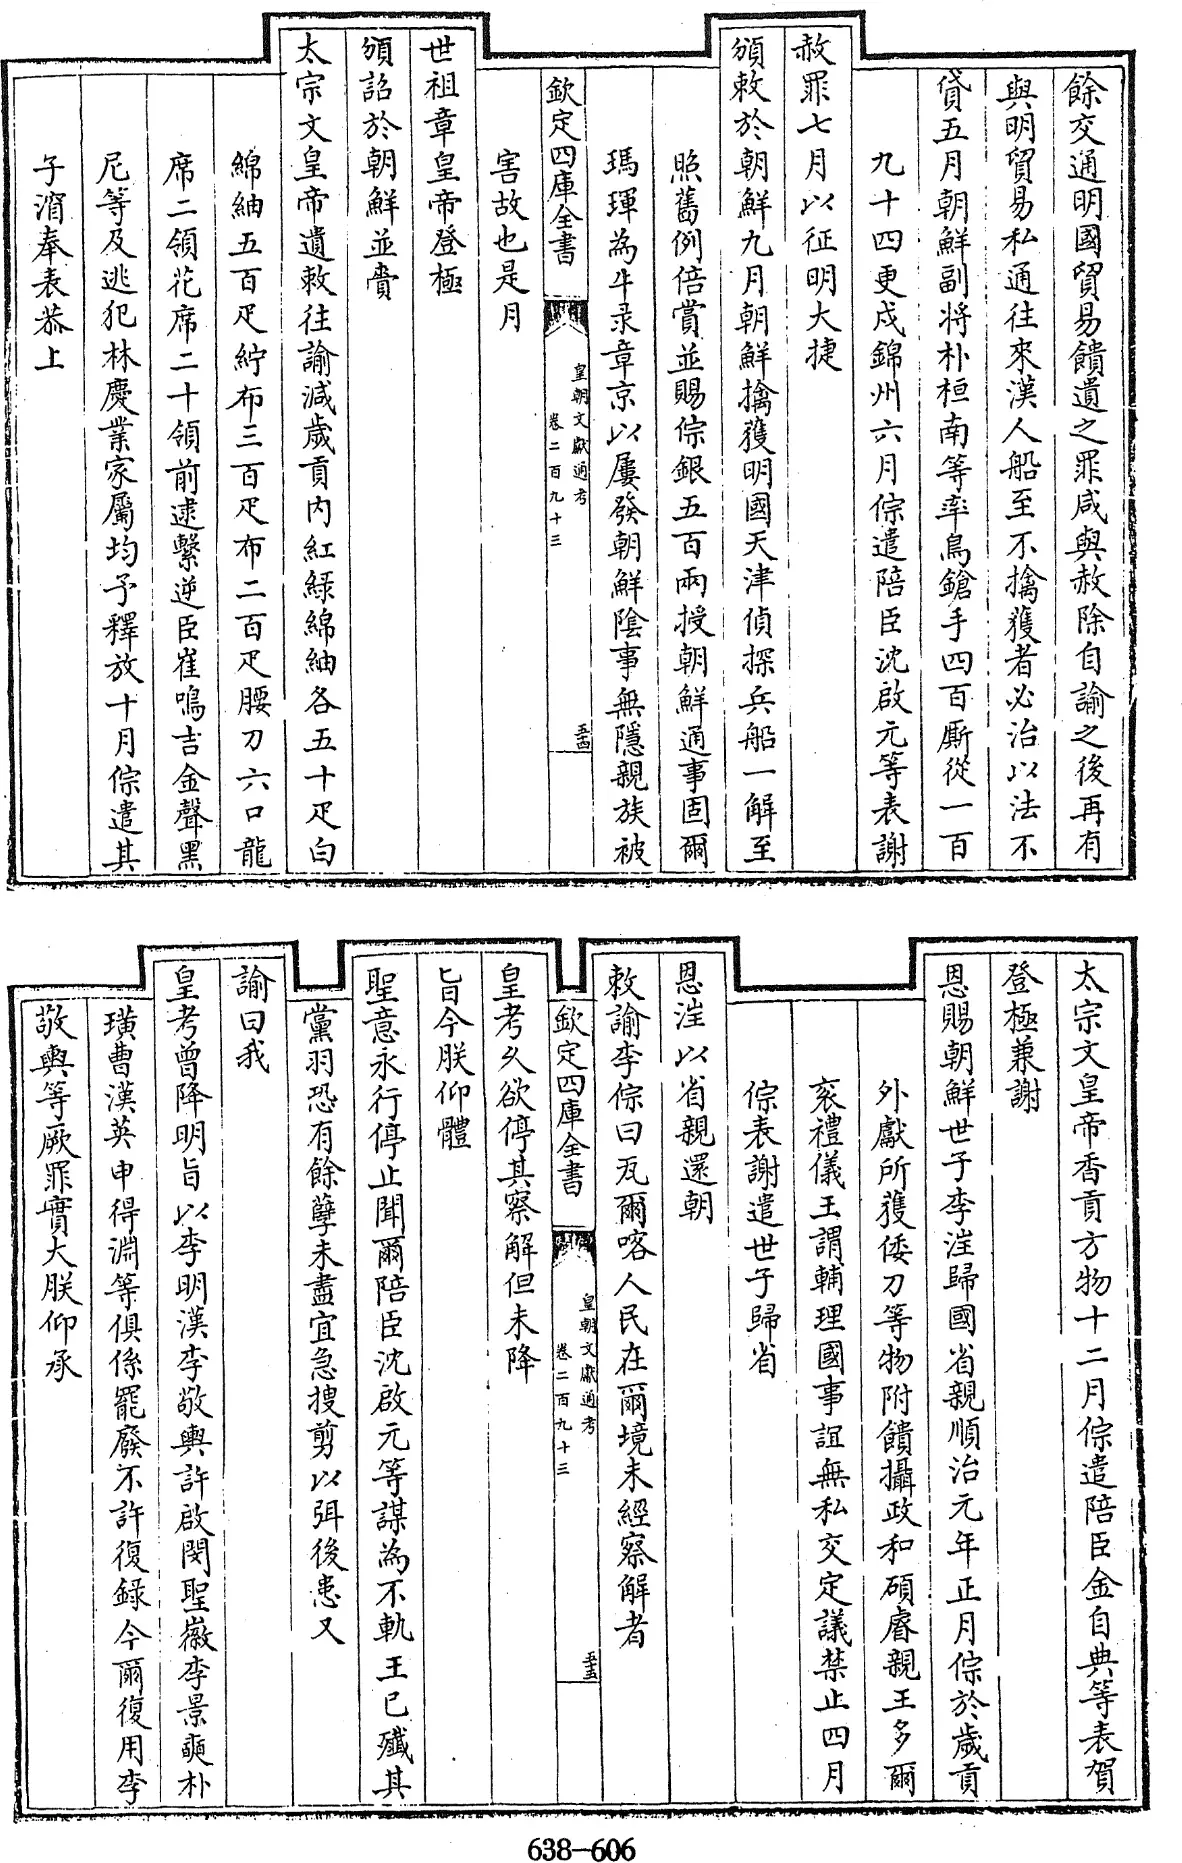 餘交通明國貿易饋遺之罪咸與赦除自諭之後再有
與明貿易私通往來漢人船至不擒獲者必治以法不
貸五月朝鮮副將朴桓南等率鳥鎗手四百廝從一百
九十四更戍錦州六月倧遣陪臣沈啟元等表謝
赦罪七月以征明大捷
頒敕於朝鮮九月朝鮮擒獲明國天津偵探兵船一解至
照舊例倍賞並賜倧銀五百兩授朝鮮通事固爾
瑪琿為牛录章京以屢發朝鮮陰事無隱親族被
欽定四庫全書
皇朝文獻通考
卷二百九十三
五十四
害故也是月
世祖章皇帝登極
頒詔於朝鮮並賫
太宗文皇帝遺敕往諭減歲貢內紅綠綿紬各五十疋白
綿紬五百疋紵布三百疋布二百疋腰刀六口龍
席二領花席二十領前逮繫逆臣崔鳴吉金聲黑
尼等及逃犯林慶業家屬均予釋放十月倧遣其
子㴭奉表恭上
太宗文皇帝香貢方物十二月倧遣陪臣金自典等表賀
登極兼謝
恩賜朝鮮世子李𣳫歸國省親順治元年正月倧於歲貢
外獻所獲倭刀等物附饋攝政和碩睿親王多爾
袞禮儀王謂輔理國事誼無私交定議禁止四月
倧表謝遣世子歸省
恩𣳫以省親還朝
敕諭李倧曰瓦爾喀人民在爾境未經察解者
欽定四庫全書
皇朝文獻通考
卷二百九十三
五十五
皇考久欲停其察解但未降
旨今朕仰體
聖意永行停止聞爾陪臣沈啟元等謀為不軌王已殲其
黨羽恐有餘孽未盡宜急搜剪以弭後患又
諭曰我
皇考曾降明旨以李明漢李敬輿許啟閔聖徽李景奭朴
璜曹漢英申得淵等俱係罷廢不許復錄今爾復用李
敬輿等厥罪實大朕仰承
638-606